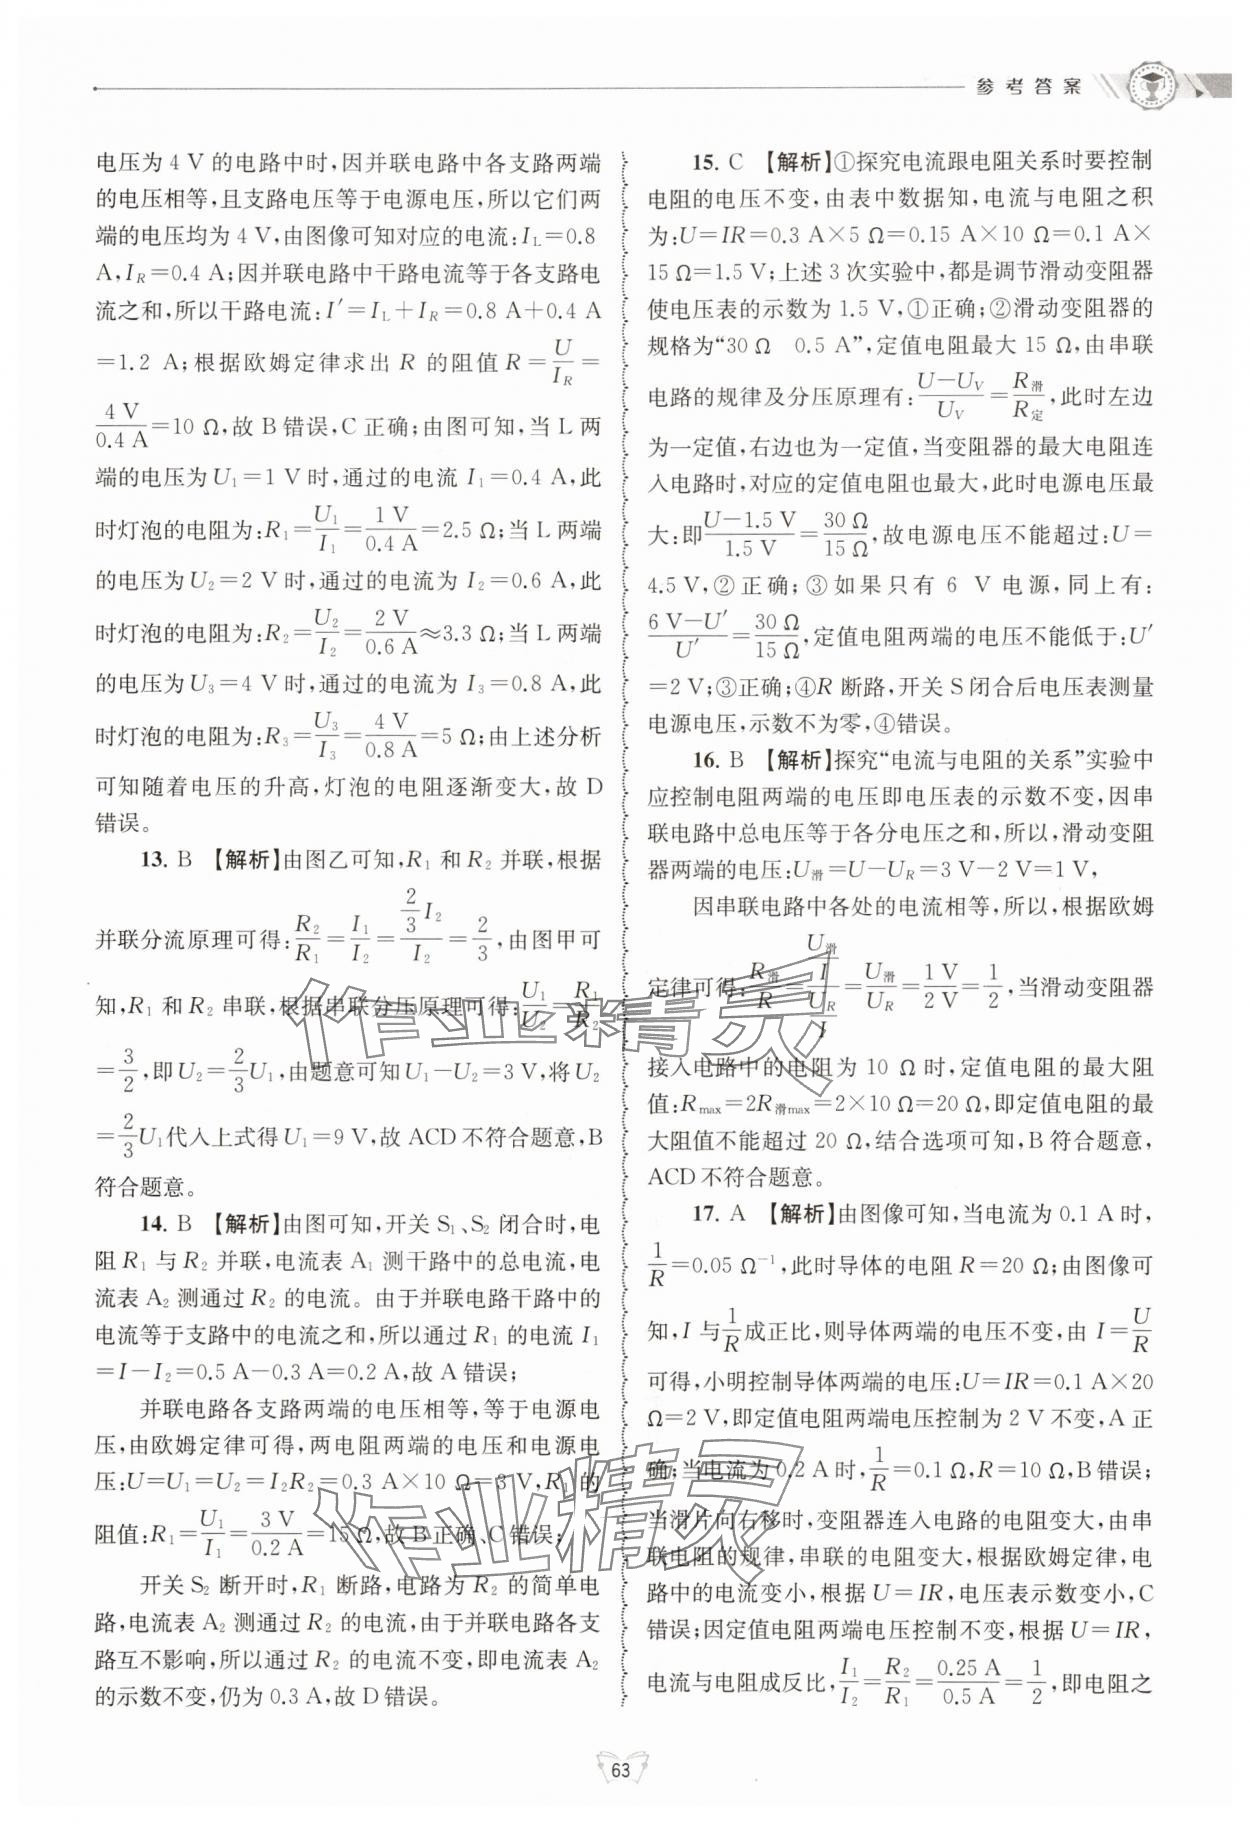 参考答案
电压为 4 V 的电路中时,因并联电路中各支路两端
的电压相等,且支路电压等于电源电压,所以它们两
端的电压均为 4 V,由图像可知对应的电流:I_L=0.8
A,I_R=0.4 A;因并联电路中干路电流等于各支路电
流之和,所以干路电流:I′=I_L+I_R=0.8 A+0.4 A
=1.2 A;根据欧姆定律求出 R 的阻值 R=U/I_R=
4 V/0.4 A=10 Ω,故 B 错误,C 正确;由图可知,当 L 两
端的电压为 U₁=1 V 时,通过的电流 I₁=0.4 A,此
时灯泡的电阻为:R₁=U₁/I₁=1 V/0.4 A=2.5 Ω;当 L 两端
的电压为 U₂=2 V 时,通过的电流为 I₂=0.6 A,此
时灯泡的电阻为:R₂=U₂/I₂=2 V/0.6 A≈3.3 Ω;当 L 两端
的电压为 U₃=4 V 时,通过的电流为 I₃=0.8 A,此
时灯泡的电阻为:R₃=U₃/I₃=4 V/0.8 A=5 Ω;由上述分析
可知随着电压的升高,灯泡的电阻逐渐变大,故 D
错误。
13. B 【解析】由图乙可知,R₁ 和 R₂ 并联,根据
并联分流原理可得:R₂/R₁=I₁/I₂=(2/3)I₂/I₂=2/3,由图甲可
知,R₁ 和 R₂ 串联,根据串联分压原理可得:U₁/U₂=R₁/R₂
=3/2,即 U₂=2/3U₁,由题意可知 U₁-U₂=3 V,将 U₂
=2/3U₁代入上式得 U₁=9 V,故 ACD 不符合题意,B
符合题意。
14. B 【解析】由图可知,开关 S₁、S₂ 闭合时,电
阻 R₁ 与 R₂ 并联,电流表 A₁ 测干路中的总电流,电
流表 A₂ 测通过 R₂ 的电流。由于并联电路干路中的
电流等于支路中的电流之和,所以通过 R₁ 的电流 I₁
=I-I₂=0.5 A-0.3 A=0.2 A,故 A 错误;
并联电路各支路两端的电压相等,等于电源电
压,由欧姆定律可得,两电阻两端的电压和电源电
压:U=U₁=U₂=I₂R₂=0.3 A×10 Ω=3 V,R₁ 的
阻值:R₁=U₁/I₁=3 V/0.2 A=15 Ω,故 B 正确、C 错误;
开关 S₂ 断开时,R₁ 断路,电路为 R₂ 的简单电
路,电流表 A₂ 测通过 R₂ 的电流,由于并联电路各支
路互不影响,所以通过 R₂ 的电流不变,即电流表 A₂
的示数不变,仍为 0.3 A,故 D 错误。
15. C 【解析】①探究电流跟电阻关系时要控制
电阻的电压不变,由表中数据知,电流与电阻之积
为:U=IR=0.3 A×5 Ω=0.15 A×10 Ω=0.1 A×
15 Ω=1.5 V;上述 3 次实验中,都是调节滑动变阻器
使电压表的示数为 1.5 V,①正确;②滑动变阻器的
规格为“30 Ω 0.5 A”,定值电阻最大 15 Ω,由串联
电路的规律及分压原理有:(U-U_V)/U_V=R滑/R定,此时左边
为一定值,右边也为一定值,当变阻器的最大电阻连
入电路时,对应的定值电阻也最大,此时电源电压最
大:即(U-1.5 V)/1.5 V=30 Ω/15 Ω,故电源电压不能超过:U=
4.5 V,②正确;③如果只有 6 V 电源,同上有:
(6 V-U′)/U′=30 Ω/15 Ω,定值电阻两端的电压不能低于:U′
=2 V;③正确;④R 断路,开关 S 闭合后电压表测量
电源电压,示数不为零,④错误。
16. B 【解析】探究“电流与电阻的关系”实验中
应控制电阻两端的电压即电压表的示数不变,因串
联电路中总电压等于各分电压之和,所以,滑动变阻
器两端的电压:U滑=U-U_R=3 V-2 V=1 V,
因串联电路中各处的电流相等,所以,根据欧姆
定律可得:R滑/R=(U滑/I)/(U_R/I)=U滑/U_R=1 V/2 V=1/2,当滑动变阻器
接入电路中的电阻为 10 Ω 时,定值电阻的最大阻
值:R_max=2R滑max=2×10 Ω=20 Ω,即定值电阻的最
大阻值不能超过 20 Ω,结合选项可知,B 符合题意,
ACD 不符合题意。
17. A 【解析】由图像可知,当电流为 0.1 A 时,
1/R=0.05 Ω⁻¹,此时导体的电阻 R=20 Ω;由图像可
知,I 与1/R成正比,则导体两端的电压不变,由 I=U/R
可得,小明控制导体两端的电压:U=IR=0.1 A×20
Ω=2 V,即定值电阻两端电压控制为 2 V 不变,A 正
确;当电流为 0.2 A 时,1/R=0.1 Ω,R=10 Ω,B 错误;
当滑片向右移时,变阻器连入电路的电阻变大,由串
联电阻的规律,串联的电阻变大,根据欧姆定律,电
路中的电流变小,根据 U=IR,电压表示数变小,C
错误;因定值电阻两端电压控制不变,根据 U=IR,
电流与电阻成反比,I₁/I₂=R₂/R₁=0.25 A/0.5 A=1/2,即电阻之
63
作业精灵
作业精灵